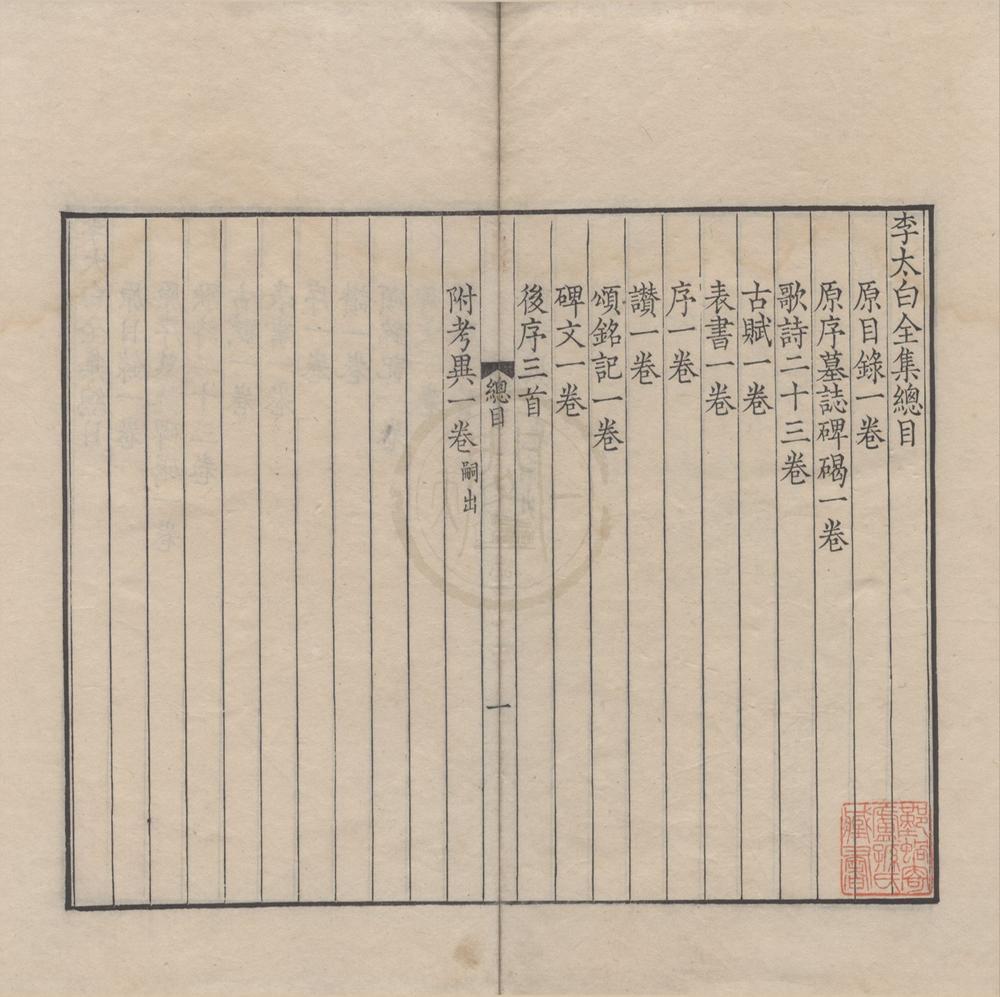 李太白全集總目
原目錄一卷
原序墓誌碑碣一卷
歌詩二十三卷
古賦一卷
表書一卷
序一卷
讚一卷
頌銘記一卷
碑文一卷
後序三首
總目
一
附考異一卷嗣出